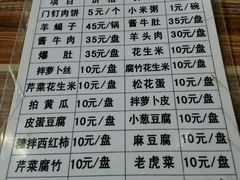 门钉肉饼 5元/个 小米粥 1元/碗
羊蝎子 45元/锅 酱牛肚 35元/盘
酱牛肉 35元/盘 羊头肉 30元/盘
爆肚 35元/盘 花生米 10元/盘
拌萝卜丝 10元/盘 腐竹花生米 10元/盘
芹菜花生米 10元/盘 松花蛋 10元/盘
拍黄瓜 10元/盘 拌萝卜皮 10元/盘
皮蛋豆腐 10元/盘 小葱豆腐 10元/盘
糖拌西红柿 10元/盘 麻豆腐 10元/盘
芹菜腐竹 10元/盘 老虎菜 10元/盘